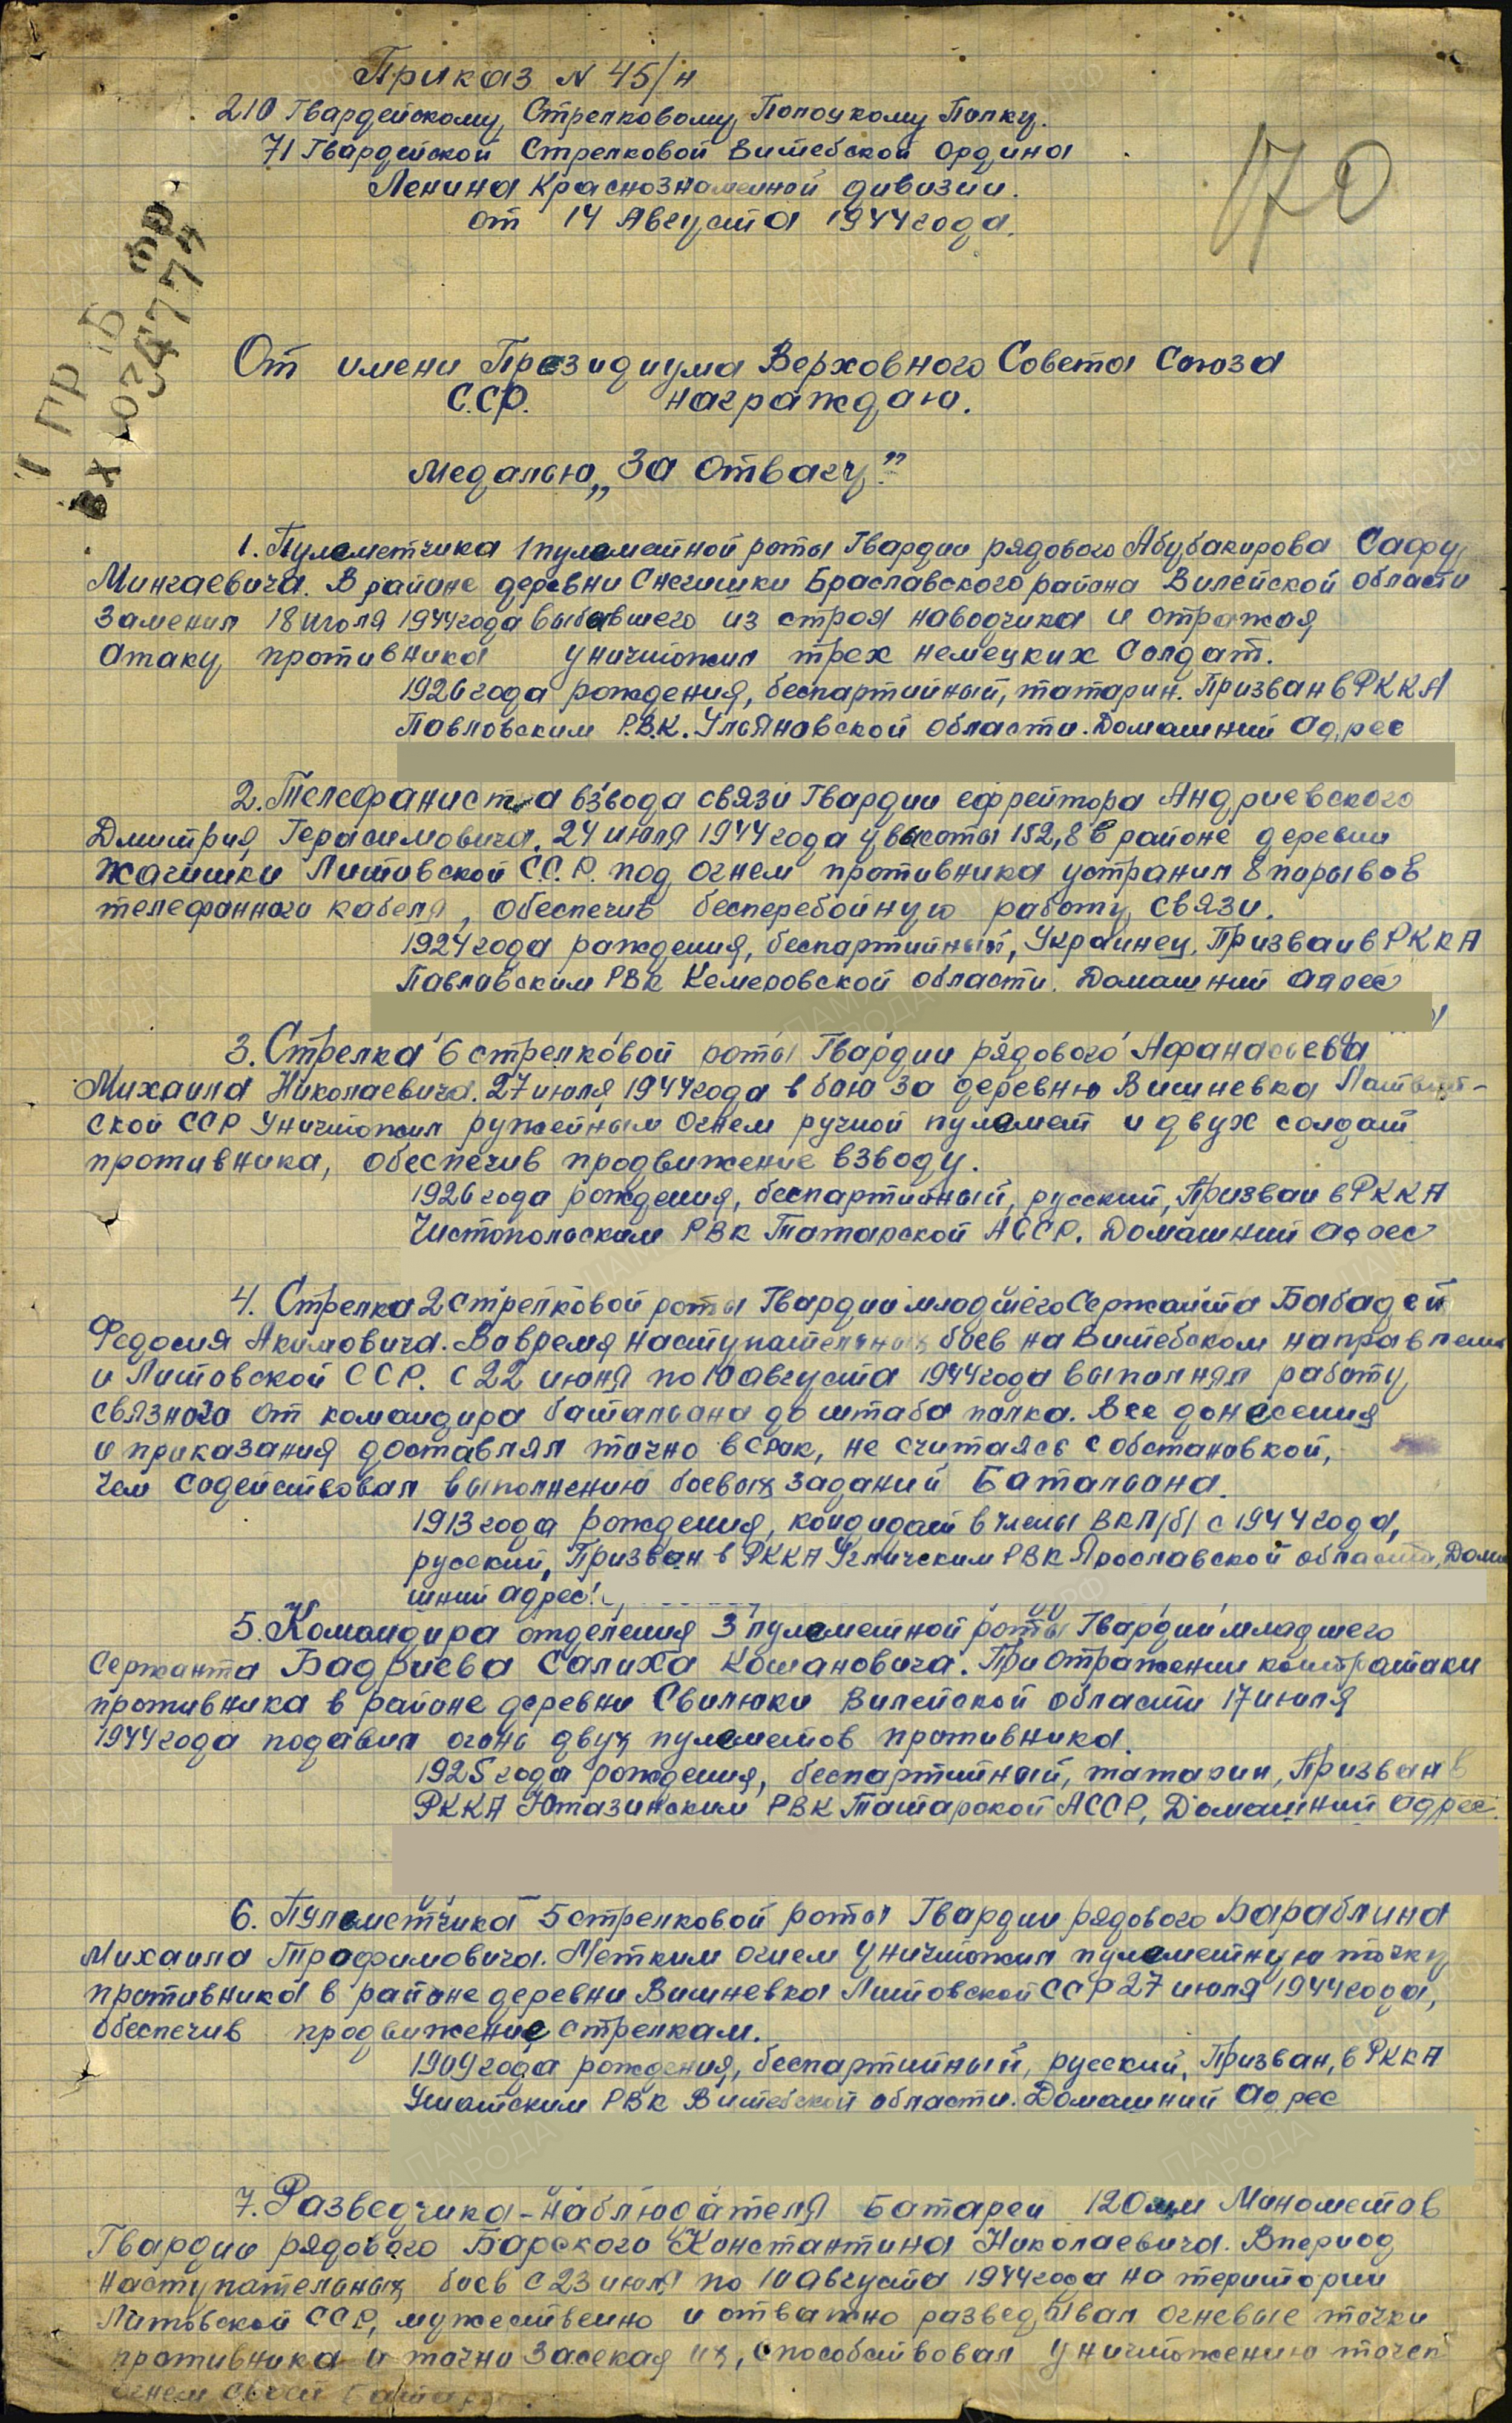 Приказ N 45/н
210 Гвардейскому Стрелковому Полоцкому Полку.
71 Гвардейской Стрелковой Витебской ордина
Ленина Краснознаменной дивизии.
от 14 Августа 1944 года.
170
1 ГР Б
ВХ 034774
От имени Президиума Верховного Совета Союза
С.СР. награждаю.
Медалью „За отвагу"
1. Пулеметчика 1 пулеметной роты Гвардии рядового Абубакирова Сафу
Мингаевича. В районе деревни Снегишки Браславского района Вилейской области
заменил 18 июля 1944 года выбывшего из строя наводчика и отражая
атаку противника уничтожил трех немецких солдат.
1926 года рождения, беспартийный, татарин. Призван в РККА
Павловским Р.В.К. Ульяновской области. Домашний адрес
2. Телефаниста взвода связи Гвардии ефрейтора Андриевского
Дмитрия Герасимовича. 24 июля 1944 года у высоты 152,8 в районе деревни
Жагишки Литовской СС.Р. под огнем противника устранил 8 порывов
телефанного кабеля, обеспечив бесперебойную работу связи.
1924 года рождения, беспартийный, Украинец, Призван в РККА
Павловским РВК Кемеровской области. Домашний адрес
3. Стрелка 6 стрелковой роты Гвардии рядового Афанасьева
Михаила Николаевича. 27 июля 1944 года в бою за деревню Вишневка
ской ССР уничтожил ружейным огнем ручной пулемет и двух солдат
противника, обеспечив продвижение взводу.
1926 года рождения, беспартийный, русский, Призван в РККА
Чистопольским РВК Татарской АССР. Домашний адрес
4. Стрелка 2 стрелковой роты Гвардии младшего Сержанта Бабадей
Федосия Акимовича. Вовремя наступательных боев на Витебском направлении
и Литовской ССР. с 22 июня по 10 августа 1944 года выполнял работу
связного от командира батальона до штаба полка. Все донесения
и приказания доставлял точно в срок, не считаясь с обстановкой,
чем содействовал выполнению боевых заданий Батальона.
1913 года рождения, кандидат в члены ВКП/б/ с 1944 года,
русский, Призван в РККА Угличским РВК Ярославской области, Дома
шний адрес:
5. Командира отделения 3 пулеметной роты Гвардии младшего
Сержанта Бадриева Салиха Кошановича. При отражении контратаки
противника в районе деревни Свилюки Вилейской области 17 июля
1944 года подавил огонь двух пулеметов противника.
1925 года рождения, беспартийный, татарин, Призван в
РККА Ютазинским РВК Татарской АССР, Домашний адрес.
6. Пулеметчика 5 стрелковой роты Гвардии рядового Бараблина
Михаила Трофимовича. Метким огнем уничтожил пулеметную точку
противника в районе деревни Вишневка Литовской ССР 27 июля 1944 года,
обеспечив продвижение стрелкам.
1909 года рождения, беспартийный, русский, Призван, в РККА
Ушатским РВК Витебской области. Домашний адрес
7. Разведчика-наблюдателя Батареи 120мм Минометов
Гвардии рядового Барского Константина Николаевича. Впериод
наступательных боев с 23 июля по 10 августа 1944 года на територии
Литовской ССР, мужественно и отважно разведывал огневые точки
противника и точно засекая их, способствовал уничтожению точек
огнем своей